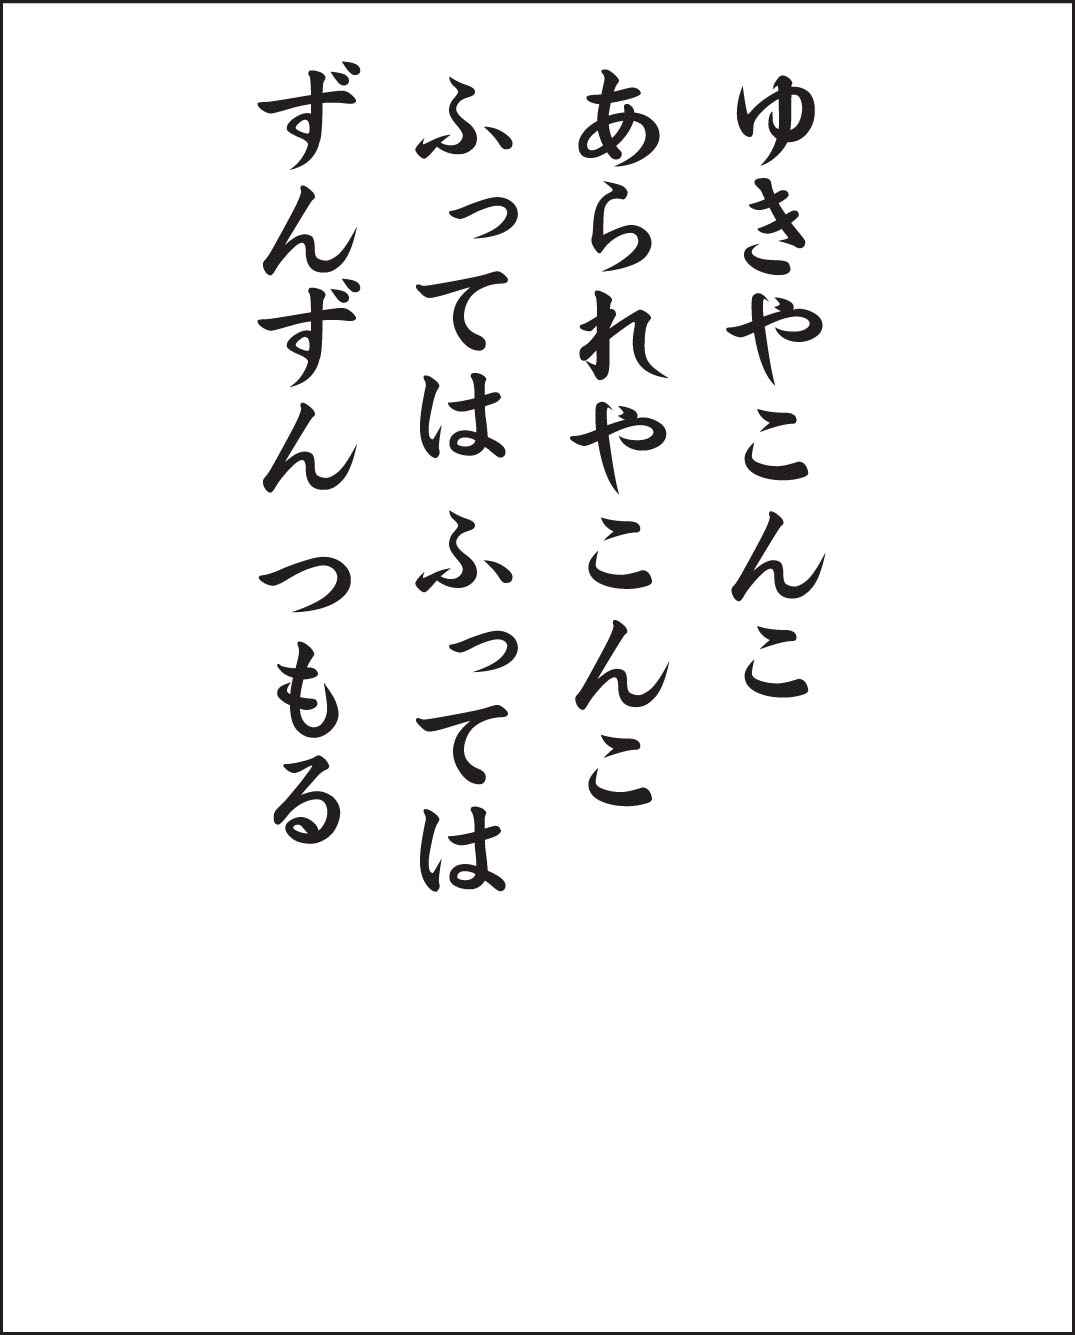 ゆきやこんこ
あられやこんこ
ふっては ふっては
ずんずん つもる